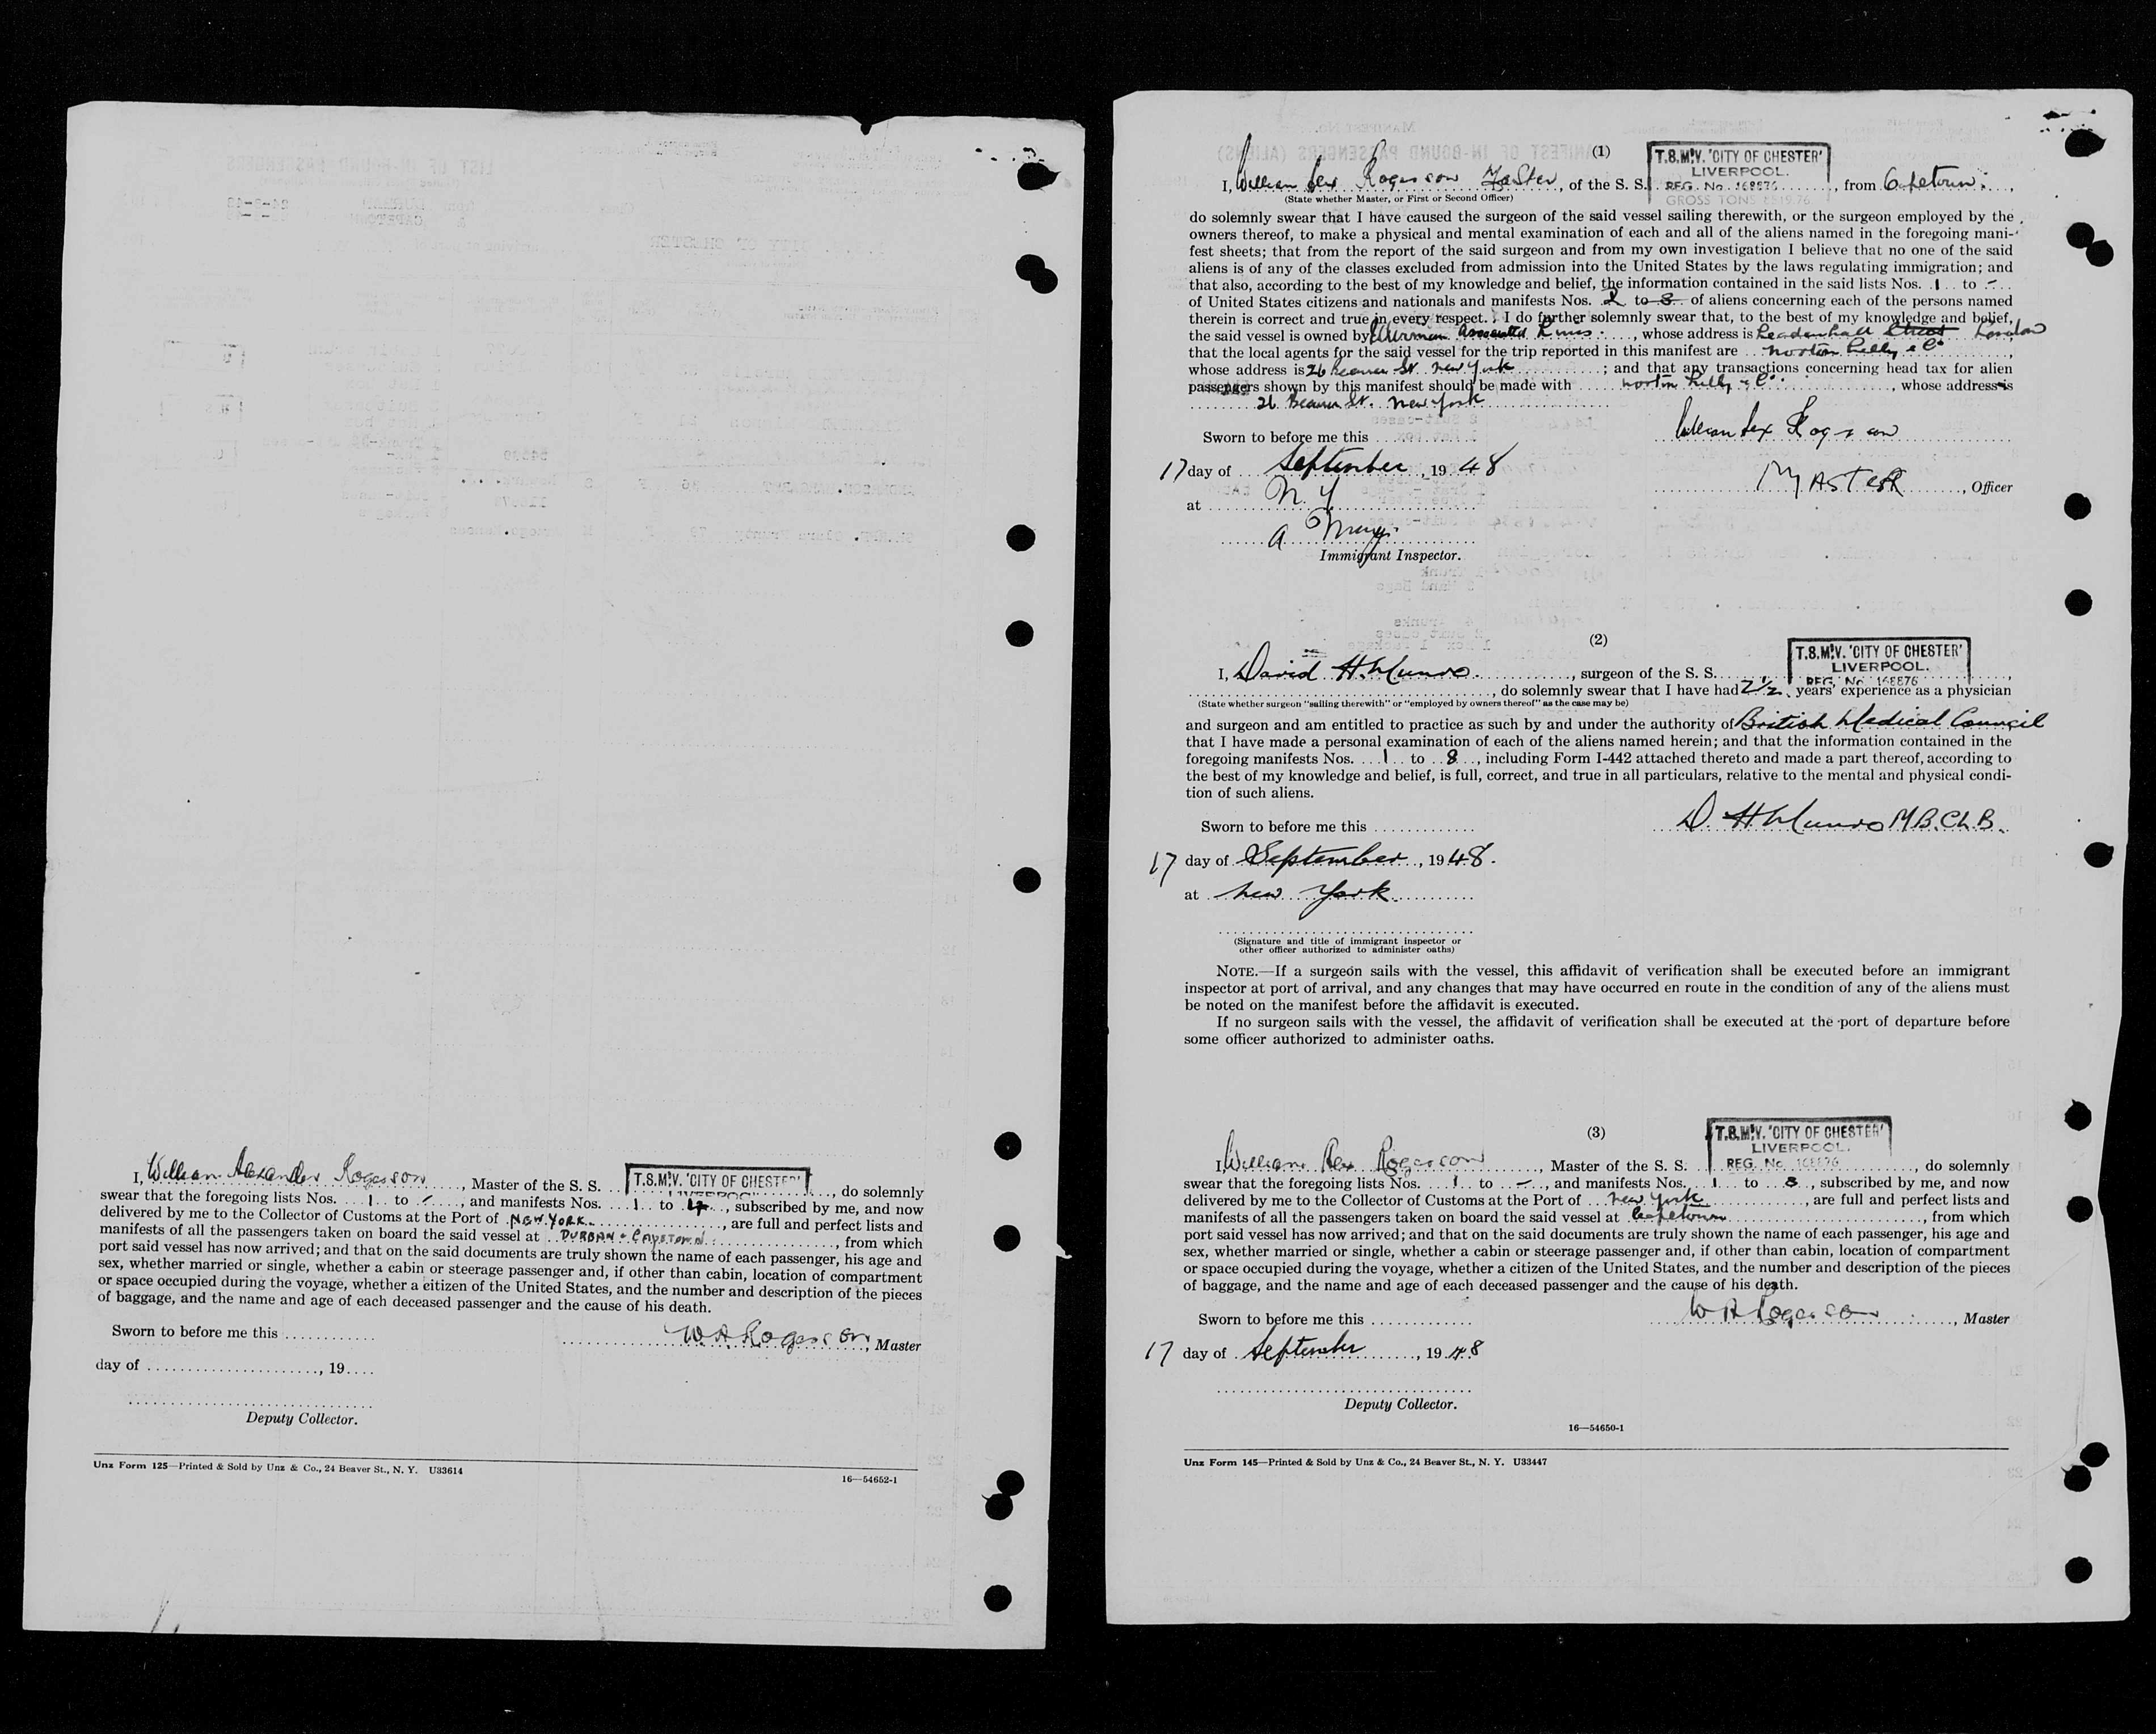 I, William Alexander Rogerson, Master of the S. S. T.S.M.V. 'CITY OF CHESTER', do solemnly
swear that the foregoing lists Nos. 1 to -, and manifests Nos. 1 to, subscribed by me, and now
delivered by me to the Collector of Customs at the Port of NEW YORK, are full and perfect lists and
manifests of all the passengers taken on board the said vessel at DURBAN & CAPETOWN, from which
port said vessel has now arrived; and that on the said documents are truly shown the name of each passenger, his age and
sex, whether married or single, whether a cabin or steerage passenger and, if other than cabin, location of compartment
or space occupied during the voyage, whether a citizen of the United States, and the number and description of the pieces
of baggage, and the name and age of each deceased passenger and the cause of his death.
Sworn to before me this
W. A. Rogerson, Master
day of , 19
Deputy Collector.
Unz Form 125—Printed & Sold by Unz & Co., 24 Beaver St., N. Y. U33614
16—54652-1
(1)
T.S.M.V. 'CITY OF CHESTER'
LIVERPOOL.
REG. No. 168876
GROSS TONS 8519.76
I, William Alex Rogerson Master, of the S. S. , from Capetown.
(State whether Master, or First or Second Officer)
do solemnly swear that I have caused the surgeon of the said vessel sailing therewith, or the surgeon employed by the
owners thereof, to make a physical and mental examination of each and all of the aliens named in the foregoing mani-
fest sheets; that from the report of the said surgeon and from my own investigation I believe that no one of the said
aliens is of any of the classes excluded from admission into the United States by the laws regulating immigration; and
that also, according to the best of my knowledge and belief, the information contained in the said lists Nos. 1 to -
of United States citizens and nationals and manifests Nos. 2 to 8 of aliens concerning each of the persons named
therein is correct and true in every respect. I do further solemnly swear that, to the best of my knowledge and belief,
the said vessel is owned by Ellerman Associated Lines, whose address is Leadenhall Street London
that the local agents for the said vessel for the trip reported in this manifest are Norton Lilly & Co,
whose address is 26 Beaver St. New York; and that any transactions concerning head tax for alien
passengers shown by this manifest should be made with Norton Lilly & Co, whose address is
26 Beaver St. New York
Sworn to before me this
William Alex Rogerson
17 day of September, 1948
MASTER, Officer
at N. Y
A
Immigrant Inspector.
(2)
T.S.M.V. 'CITY OF CHESTER'
LIVERPOOL.
REG. No. 168876
I, David H. Munro, surgeon of the S. S.
, do solemnly swear that I have had 2 1/2 years' experience as a physician
(State whether surgeon "sailing therewith" or "employed by owners thereof" as the case may be)
and surgeon and am entitled to practice as such by and under the authority of British Medical Council
that I have made a personal examination of each of the aliens named herein; and that the information contained in the
foregoing manifests Nos. 1 to 8, including Form I-442 attached thereto and made a part thereof, according to
the best of my knowledge and belief, is full, correct, and true in all particulars, relative to the mental and physical condi-
tion of such aliens.
Sworn to before me this
D. H Munro M.B. Ch.B.
17 day of September, 1948.
at New York
(Signature and title of immigrant inspector or
other officer authorized to administer oaths)
NOTE.—If a surgeon sails with the vessel, this affidavit of verification shall be executed before an immigrant
inspector at port of arrival, and any changes that may have occurred en route in the condition of any of the aliens must
be noted on the manifest before the affidavit is executed.
If no surgeon sails with the vessel, the affidavit of verification shall be executed at the port of departure before
some officer authorized to administer oaths.
(3)
T.S.M.V. 'CITY OF CHESTER'
LIVERPOOL.
REG. No. 168876
I, William Alex Rogerson, Master of the S. S. , do solemnly
swear that the foregoing lists Nos. 1 to -, and manifests Nos. 1 to 8, subscribed by me, and now
delivered by me to the Collector of Customs at the Port of New York, are full and perfect lists and
manifests of all the passengers taken on board the said vessel at Capetown, from which
port said vessel has now arrived; and that on the said documents are truly shown the name of each passenger, his age and
sex, whether married or single, whether a cabin or steerage passenger and, if other than cabin, location of compartment
or space occupied during the voyage, whether a citizen of the United States, and the number and description of the pieces
of baggage, and the name and age of each deceased passenger and the cause of his death.
Sworn to before me this
W A Rogerson, Master
17 day of September, 1948
Deputy Collector.
16—54650-1
Unz Form 145—Printed & Sold by Unz & Co., 24 Beaver St., N. Y. U33447